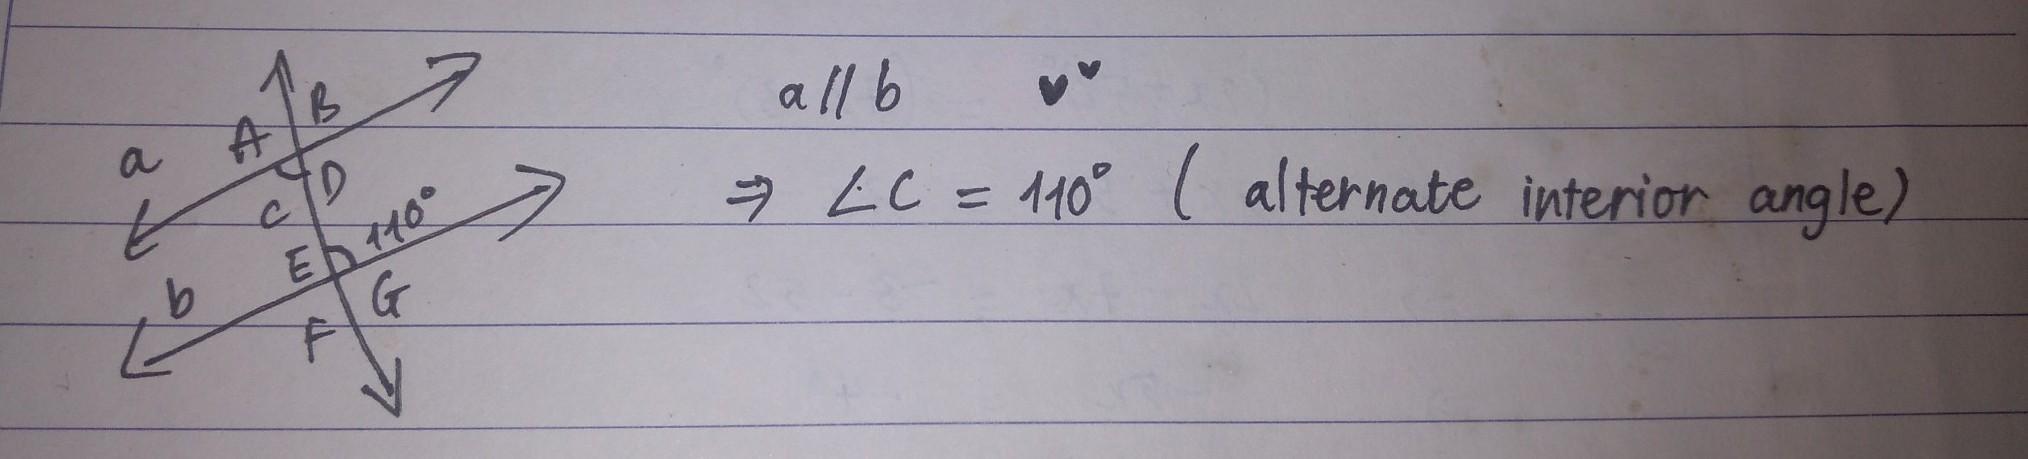 A B
a
D
C 110°
E
b G
F
a // b
⇒ ∠C = 110° ( alternate interior angle)